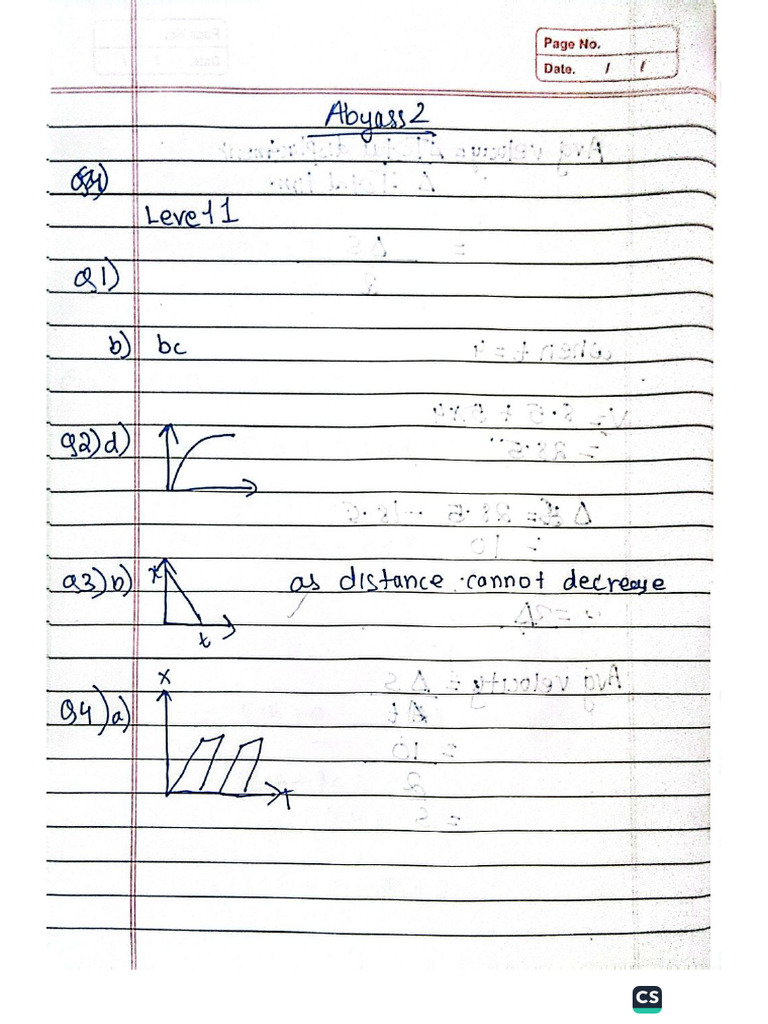 Page No.
Date. / /
Abyass 2
Level 1
Q1)
b) bc
Q2) d)
Q3) b) x as distance cannot decrease
t
x
Q4) a)
T
CS